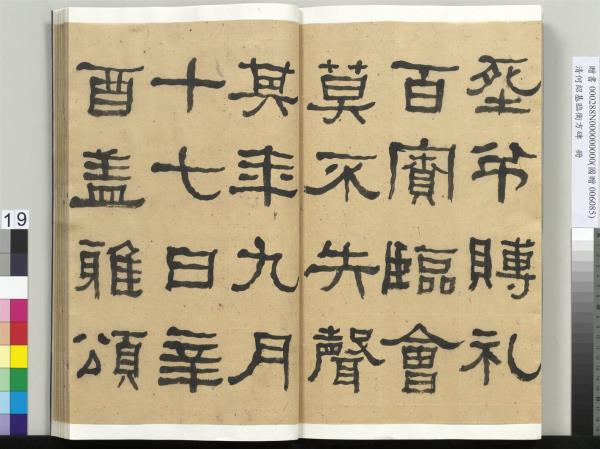 弔賻礼
百賓臨會
莫不失聲
其年九月
十七日辛
酉盖雅頌
贈書 000288N00000000(國贈 006085)
清何紹基臨衡方碑 冊
19